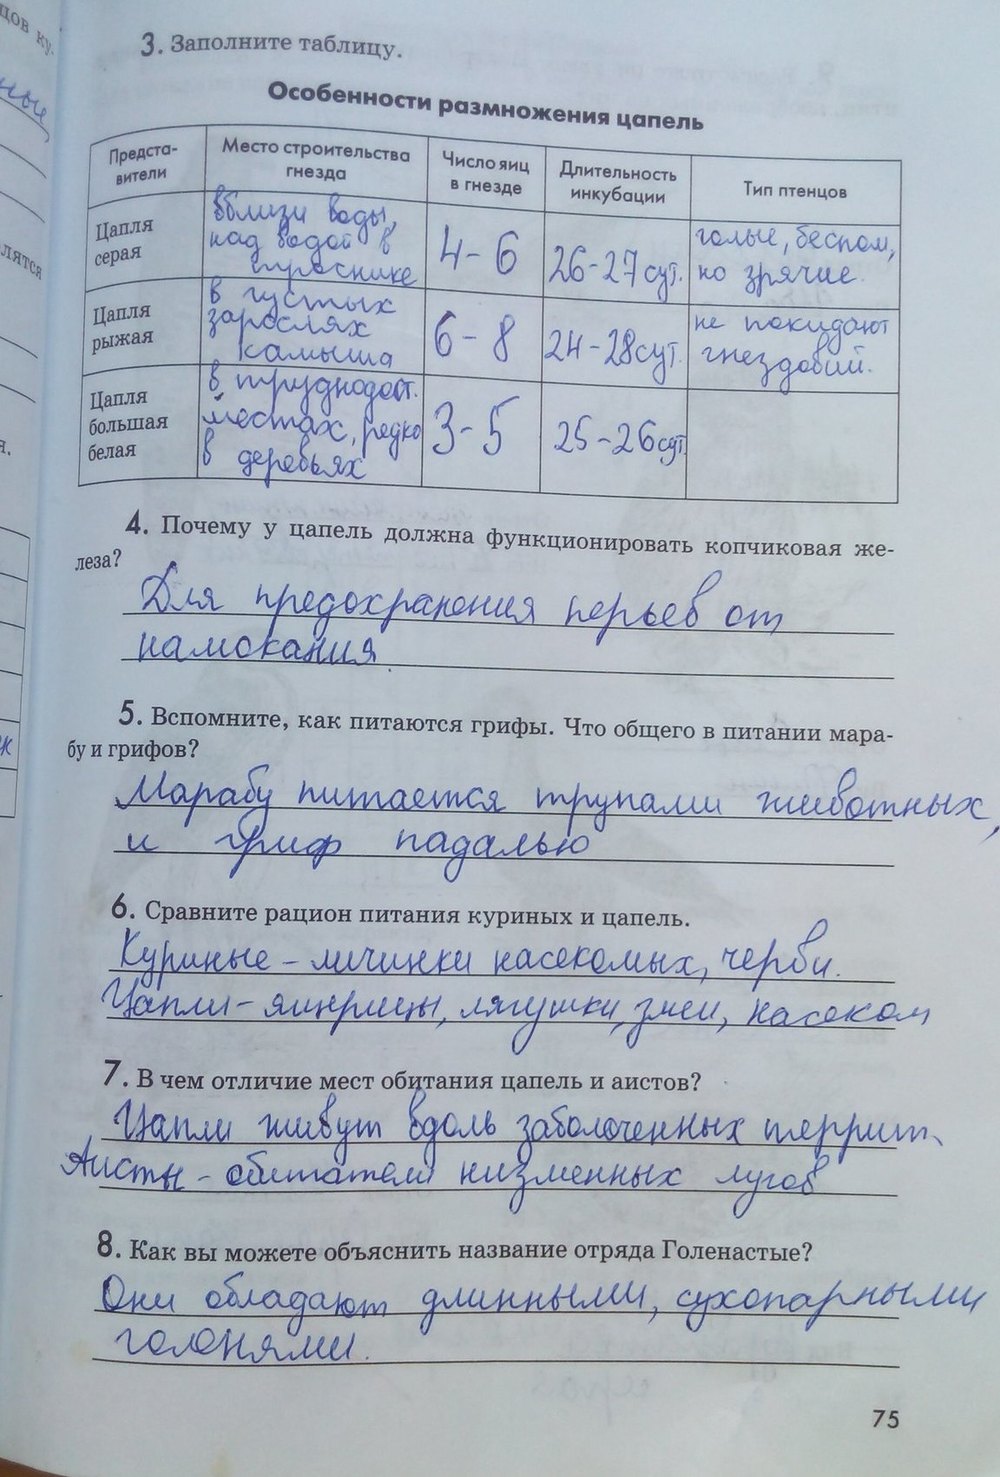 цов ку-
ные
лятся
я.
к
3. Заполните таблицу.
Особенности размножения цапель
Предста-
вители
Место строительства
гнезда
Число яиц
в гнезде
Длительность
инкубации
Тип птенцов
Цапля
серая
вблизи воды,
над водой в
тростнике
4-6
26-27 сут.
голые, беспом,
но зрячие.
Цапля
рыжая
в густых
зарослях
камыша
6-8
24-28 сут.
не покидают
гнездовий.
Цапля
большая
белая
в труднодост.
местах, редко
в деревьях
3-5
25-26 сут.
4. Почему у цапель должна функционировать копчиковая же-
леза?
Для предохранения перьев от
намокания.
5. Вспомните, как питаются грифы. Что общего в питании мара-
бу и грифов?
Марабу питается трупами животных,
и гриф падалью
6. Сравните рацион питания куриных и цапель.
Куриные - личинки насекомых, черви.
Цапли - ящерицы, лягушки, змеи, насеком
7. В чем отличие мест обитания цапель и аистов?
Цапли живут вдоль заболоченных террит.
Аисты - обитатели низменных лугов
8. Как вы можете объяснить название отряда Голенастые?
Они обладают длинными, сухопарными
голенями.
75